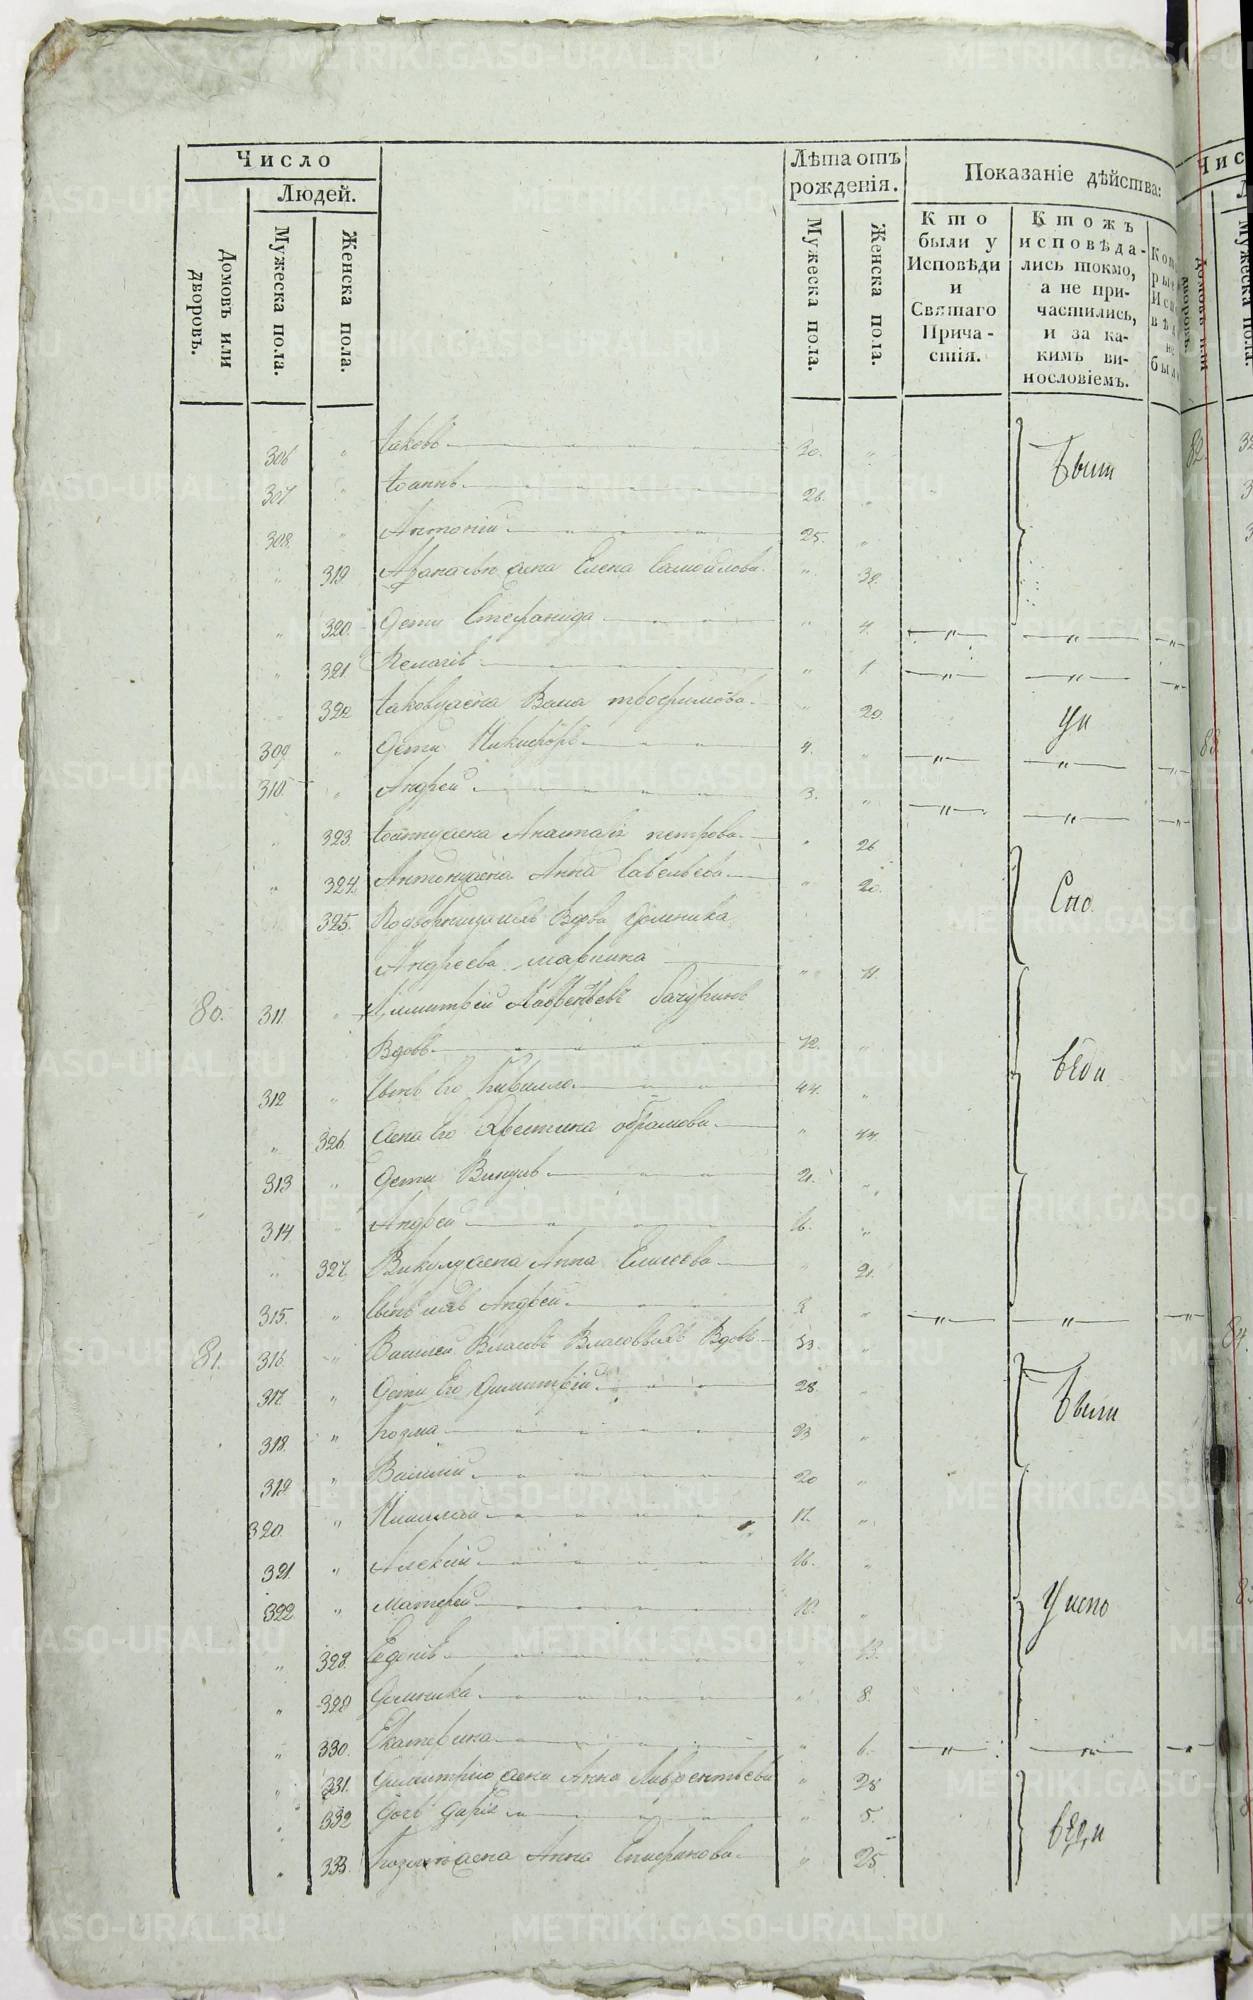 Число
Людей.
Домовъ или дворовъ.
Мужеска пола.
Женска пола.
Лѣта отъ рожденія.
Мужеска пола.
Женска пола.
Показаніе дѣйства:
Кто были у Исповѣди и Святаго Прича-стія.
Ктожъ исповѣда-лись токмо, а не при-частились, и за ка-кимъ ви-нословіемъ.
306 " Іаковъ 30. "
307 " Іоаннъ 26. "
308. " Антоній 25. "
Были
" 319 Афанасьѣ жена Елена Самойлова. " 32.
" 320. Дети Стефанида " 4.
" 321 Пелагія " 1
" 322 Іакову жена Васса трофимова. " 29.
309 " Дети Никифоръ 4. "
Уи
310. " Андрей 3. "
" 323. Іоанну жена Анастасія петрова " 26
" 324. Антону жена Анна Савельева " 20.
Спо
325. Вдова Домника
Андреева марьина " 71.
80. 311 " Димитрій Лаврентьевъ Бачуринъ
Вдовъ 72. "
вѣди
312 " Сынъ Его Кирилло 44. "
" 326 Жена Его Христина обрамова " 44
313 " Дети Викулъ 21. "
314 " Андрей 16. "
" 327 Викулу жена Анна Елисеева " 21.
315. " Сынъ ихъ Андрей 2 "
81. 316 " Василей Власовъ Власовыхъ Вдовъ 53. "
317 " Дети Его Димитрій 28. "
Были
318. " Козма 23 "
319 " Василій 20 "
320. " Николай 17. "
321 " Алексій 16. "
322 " Матфей 10. "
Уиспо
" 328. 13.
" 329 Домника " 8.
" 330. Екатерина " 6.
" 331. Димитрію жена Анна Лаврентьева " 28
" 332 Дочь Дарія " 5.
вѣди
" 333. Козмѣ жена Анна Стефанова " 25